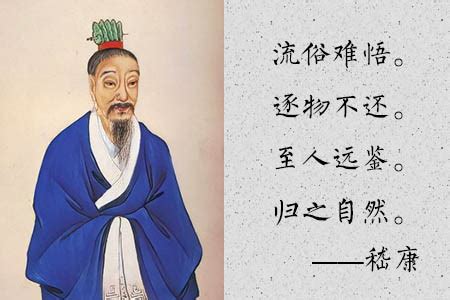 流俗难悟。
逐物不还。
至人远鉴。
归之自然。
——嵇康